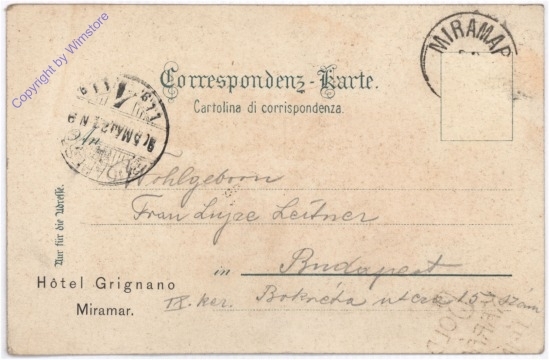 Copyright by Wimstore
MIRAMAR
Correspondenz-Karte.
Cartolina di corrispondenza.
Nur für die Adresse.
Wohlgeborn
Frau Lujze Leitner
in Budapest
IX. ker. Bokréta utcza 15 szám
Hôtel Grignano
Miramar.